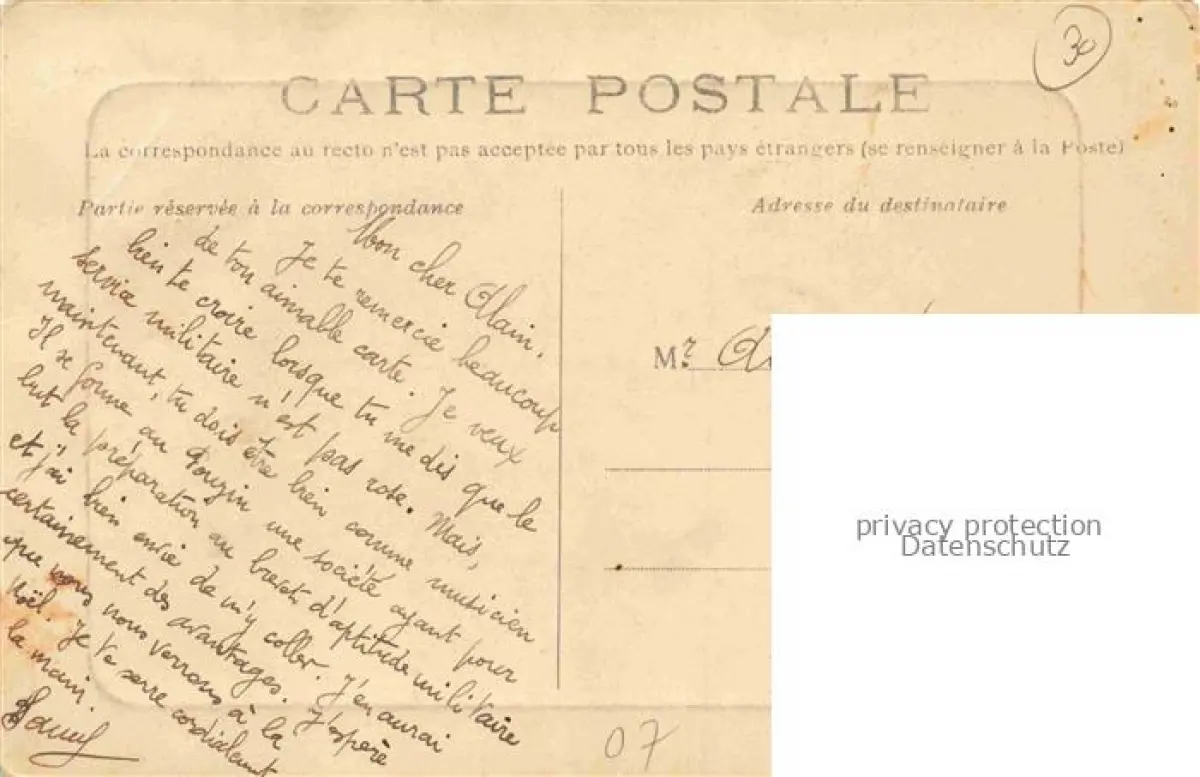 30
CARTE POSTALE
La correspondance au recto n'est pas acceptée par tous les pays étrangers (se renseigner à la Poste)
Partie réservée à la correspondance
Adresse du destinataire
Mon cher Alain,
Je te remercie beaucoup
de ton aimable carte. Je veux
bien te croire lorsque tu me dis que le
service militaire n'est pas rose. Mais,
maintenant, tu dois être bien comme musicien
Il se forme au Pouzin une société ayant pour
but la préparation au brevet d'aptitude militaire
et j'ai bien envie de m'y coller. J'en aurai
certainement des avantages. J'espère
que nous nous verrons à la
Noël. Je te serre cordialement
la main.
Mr
privacy protection
Datenschutz
07